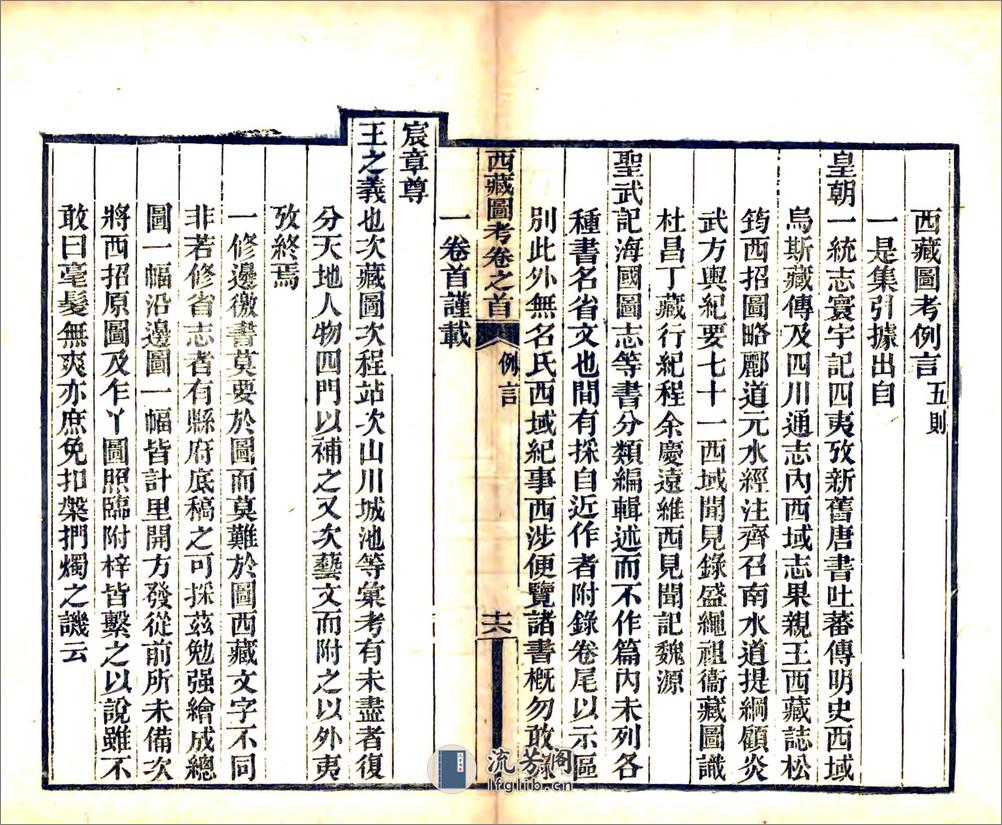 西藏圖考例言五則
一是集引據出自
皇朝一統志寰宇記四夷攷新舊唐書吐蕃傳明史西域
烏斯藏傳及四川通志內西域志果親王西藏誌松
筠西招圖略酈道元水經注齊召南水道提綱顧炎
武方輿紀要七十一西域聞見錄盛繩祖衞藏圖識
杜昌丁藏行紀程余慶遠維西見聞記魏源
聖武記海國圖志等書分類編輯述而不作篇內未列各
種書名省文也間有採自近作者附錄卷尾以示區
別此外無名氏西域紀事西涉便覽諸書概勿敢錄
西藏圖考卷之首 例言 十六
一卷首謹載
宸章尊
王之義也次藏圖次程站次山川城池等彙考有未盡者復
分天地人物四門以補之又次藝文而附之以外夷
攷終焉
一修邊徼書莫要於圖而莫難於圖西藏文字不同
非若修省志者有縣府底稿之可採茲勉强繪成總
圖一幅沿邊圖一幅皆計里開方發從前所未備次
將西招原圖及乍丫圖照臨附梓皆繫之以說雖不
敢曰毫髮無爽亦庶免扣槃捫燭之譏云
流芳阁
lfglib.cn